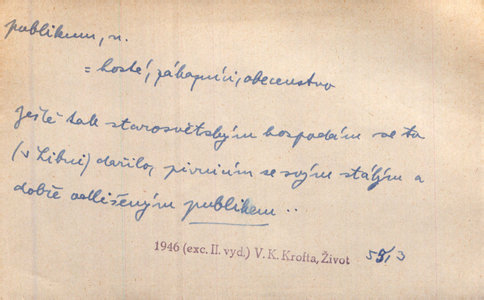 publikum, n.
= hosté, zákazníci, obecenstvo
Ještě tak starosvětským hospodám se tu
(v Libni) dařilo, pivnicím se svým stálým a
dobře odlišeným publikem ..
1946 (exc. II. vyd.) V. K. Krofta, Život 3